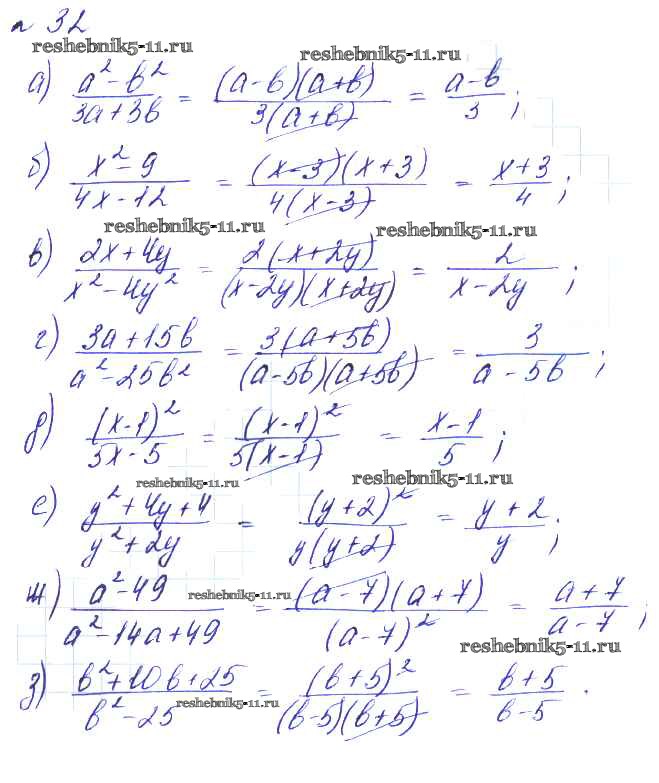 № 32
reshebnik5-11.ru reshebnik5-11.ru
а) (a² - b²)/(3a + 3b) = ((a - b)(a + b))/(3(a + b)) = (a - b)/3 ;
б) (x² - 9)/(4x - 12) = ((x - 3)(x + 3))/(4(x - 3)) = (x + 3)/4 ;
reshebnik5-11.ru reshebnik5-11.ru
в) (2x + 4y)/(x² - 4y²) = (2(x + 2y))/((x - 2y)(x + 2y)) = 2/(x - 2y) ;
г) (3a + 15b)/(a² - 25b²) = (3(a + 5b))/((a - 5b)(a + 5b)) = 3/(a - 5b) ;
д) (x - 1)²/(5x - 5) = (x - 1)²/(5(x - 1)) = (x - 1)/5 ;
reshebnik5-11.ru reshebnik5-11.ru
е) (y² + 4y + 4)/(y² + 2y) = (y + 2)²/(y(y + 2)) = (y + 2)/y ;
ж) (a² - 49)/(a² - 14a + 49) = ((a - 7)(a + 7))/(a - 7)² = (a + 7)/(a - 7) ;
reshebnik5-11.ru reshebnik5-11.ru
з) (b² + 10b + 25)/(b² - 25) = (b + 5)²/((b - 5)(b + 5)) = (b + 5)/(b - 5) .
reshebnik5-11.ru